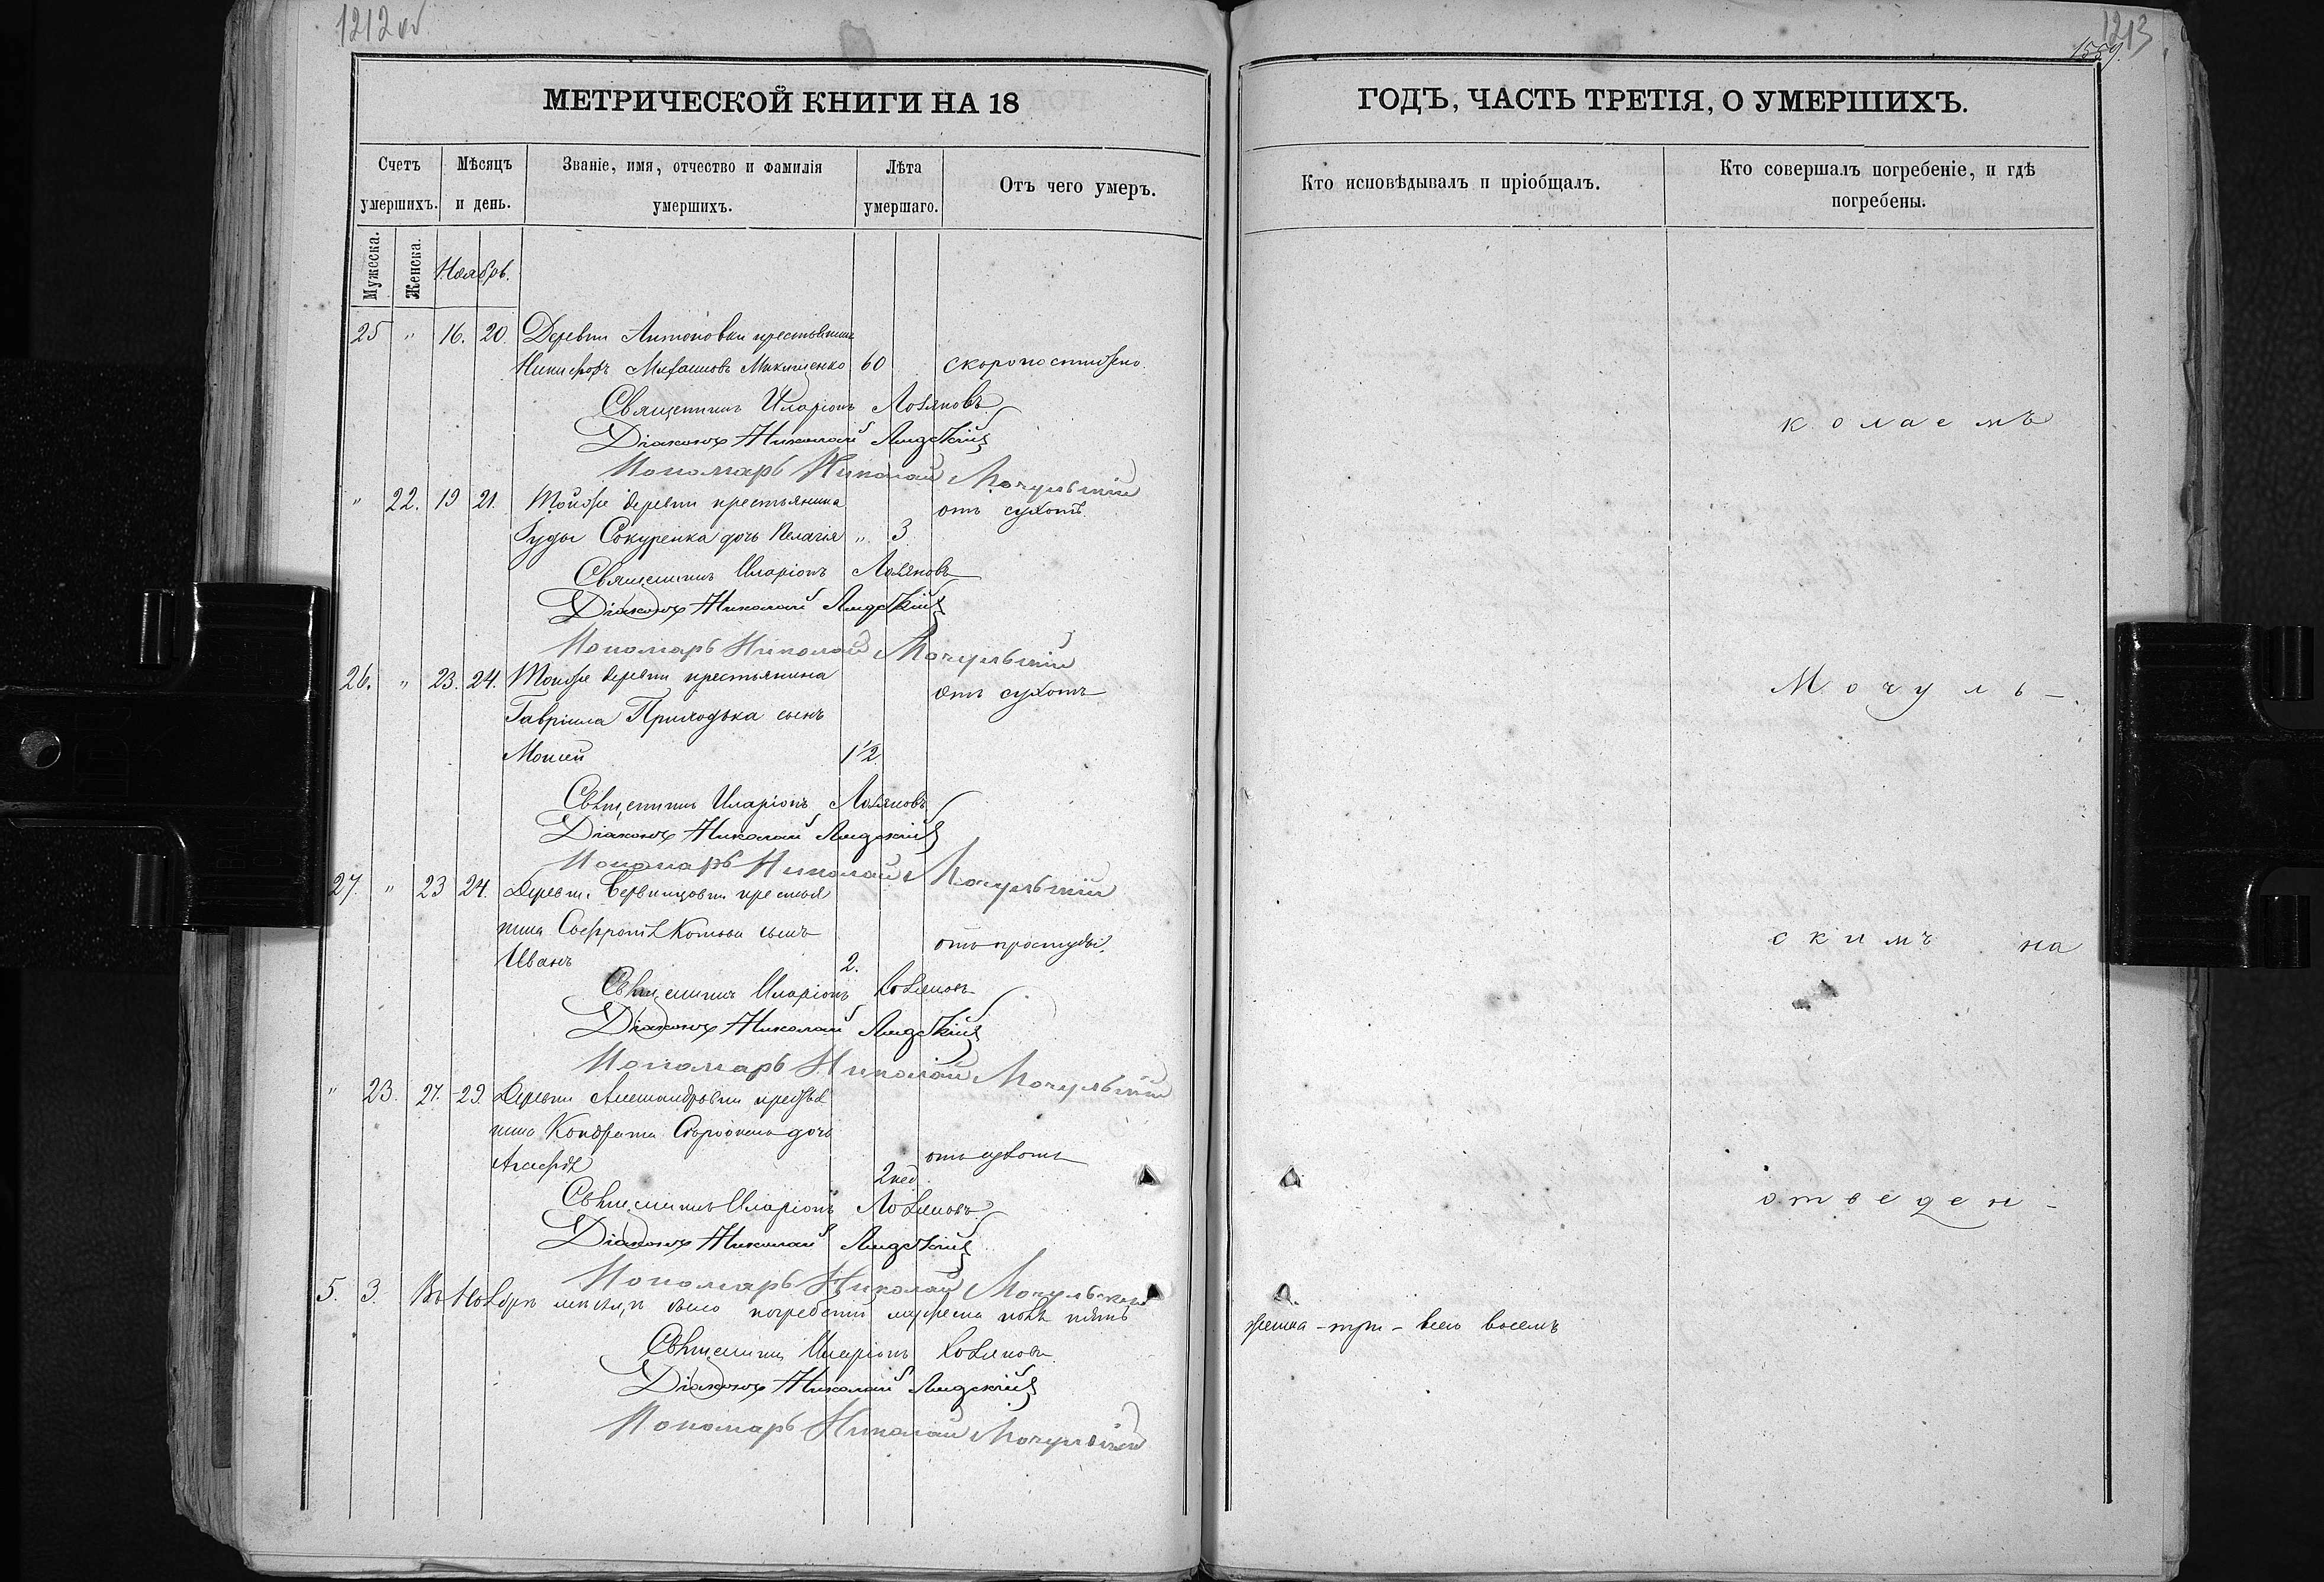 1212 об
МЕТРИЧЕСКОЙ КНИГИ НА 18
Счетъ умершихъ.
Мѣсяцъ и день.
Званіе, имя, отчество и фамилія умершихъ.
Лѣта умершаго.
Отъ чего умеръ.
Мужеска.
Женска.
Ноябрь.
25 " 16. 20. Деревни Антоновки крестьянинъ
Никифоръ 60 скоропостижно.
Священникъ Иларіонъ
Діаконъ Николай
Пономарь Николай Мочульскій
" 22. 19 21. Тойже деревни крестьянина отъ сухотъ
Сокуренка дочь Пелагія " 3.
Священникъ Иларіонъ
Діаконъ Николай
Пономарь Николай Мочульскій
26. " 23. 24. Тойже деревни крестьянина отъ сухотъ
Гавріила Приходька сынъ
Моисей 1½.
Священникъ Иларіонъ
Діаконъ Николай
Пономарь Николай Мочульскій
27. " 23 24. Деревни крестья
нина Софронія сынъ отъ простуды.
Иванъ 2.
Священникъ Иларіонъ
Діаконъ Николай
Пономарь Николай Мочульскій
" 23. 27. 29. Деревни Александровки крестья
нина Кондрата дочь
Агафія 2 нед. отъ сухотъ
Священникъ Иларіонъ
Діаконъ Николай
Пономарь Николай Мочульскій
5. 3. Въ Ноябрѣ мѣсяцѣ было погребеній мужеска пола пять
Священникъ Иларіонъ
Діаконъ Николай
Пономарь Николай Мочульскій
1213
1559.
ГОДЪ, ЧАСТЬ ТРЕТІЯ, О УМЕРШИХЪ.
Кто исповѣдывалъ и пріобщалъ.
Кто совершалъ погребеніе, и гдѣ погребены.
колаемъ
Мочуль-
скимъ на
отведен-
женска - три - всего восемь